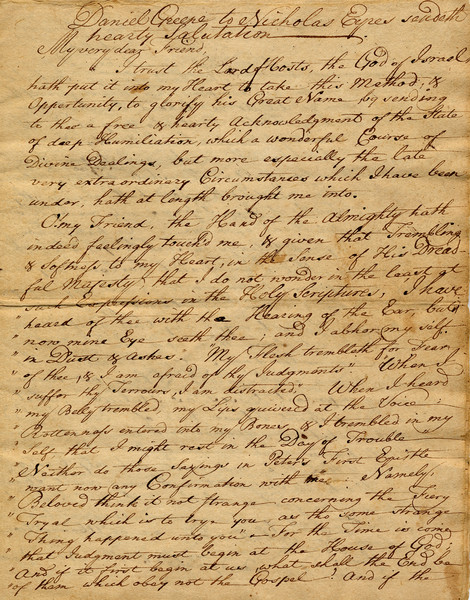 Daniel Greene to Nicholas Eyres sendeth
hearty Salutation
My very dear Friend,
I trust the Lord of Hosts, the God of Israel
hath put it into my Heart to take this Method, &
Opportunity, to glorify his Great Name by sending
to thee a free & hearty Acknowledgment of the State
of deep Humiliation, which a wonderful Course of
Divine Dealings, but more especially the late
very extraordinary Circumstances which I have been
under, hath at length brought me into.
O! my Friend, the Hand of the Almighty hath
indeed feelingly touched me, & given that Trembling
& Softness to my Heart, in the Sense of His Dread-
ful Majesty, that I do not wonder in the least at
such Expressions in the Holy Scriptures, I have
heard of thee with the Hearing of the Ear, but
" now mine Eye seeth thee; and I abhor my self
" in Dust & Ashes. My Flesh trembleth for Fear
" of thee, & I am afraid of thy Judgments" When I
" suffer thy Terrours, I am distracted" When I heard
" my Belly trembled, my Lips quivered at the Voice:
" Rottenness entered into my Bones, & I trembled in my
" Self, that I might rest in the Day of Trouble
Neither do those Sayings in Peter's First Epistle
want now any Confirmation with me. Namely,
" Beloved think it not strange concerning the Fiery
" Tryal which is to try you, as tho some strange
" Thing happened unto you" - For the Time is come
" that Judgment must begin at the House of God;
" And if it first begin at us what shall the End be
" of them which obey not the Gospel? And if the